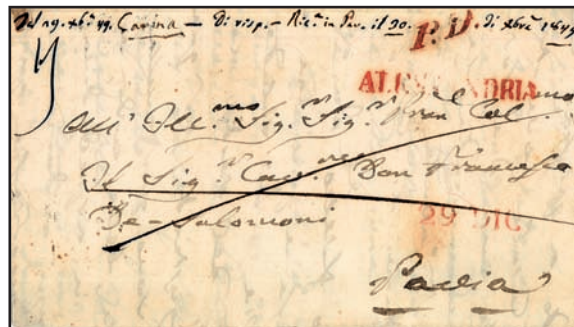 Del 29. Xbre 49. Cavina — Di risp. — Ric.ta in Pav. il 30. Di Xbre 1849
P.D.
ALESSANDRIA
All' Ill.mo Sig.r Sig.r Pron Col.mo
Il Sig.r Cav.re Don Francesco
De-Salomoni
29 DIC
Pavia